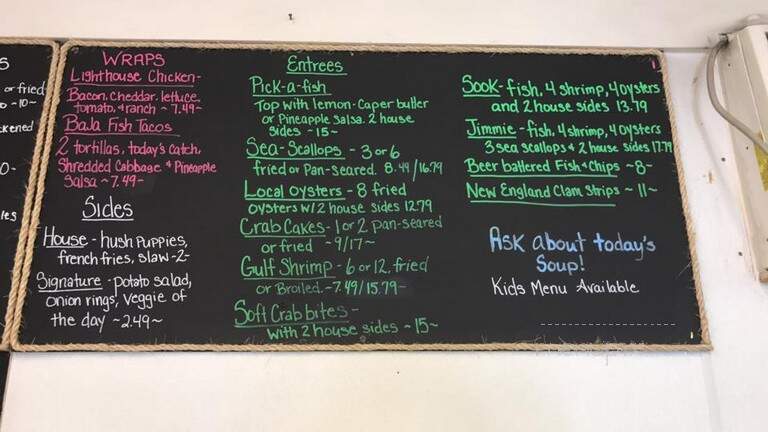 S
or fried
~10~
ckened
0-
les
WRAPS
Lighthouse Chicken-
Bacon, Cheddar, lettuce
tomato, & ranch ~ 7.49~
Baja Fish Tacos
2 tortillas, today's catch,
Shredded Cabbage & Pineapple
Salsa ~ 7.49~
Sides
House - hush puppies,
french fries, slaw -2-
Signature - potato salad,
onion rings, veggie of
the day ~2.49~
Entrees
Pick-a-fish
Top with lemon-caper butter
or Pineapple Salsa. 2 house
sides ~15~
Sea-Scallops - 3 or 6
fried or Pan-seared. 8.49/16.79
Local oysters - 8 fried
oysters w/2 house sides 12.79
Crab Cakes - 1 or 2 pan-seared
or fried ~9/17~
Gulf Shrimp - 6 or 12, fried
or Broiled. ~7.49/15.79~
Soft Crab bites -
with 2 house sides ~ 15~
Sook - fish, 4 shrimp, 4 oysters
and 2 house sides 13.79
Jimmie - fish, 4 shrimp, 4 oysters
3 sea scallops & 2 house sides 17.79
Beer battered Fish & Chips ~8~
New England Clam Strips ~ 11~
Ask about today's
Soup!
Kids Menu Available